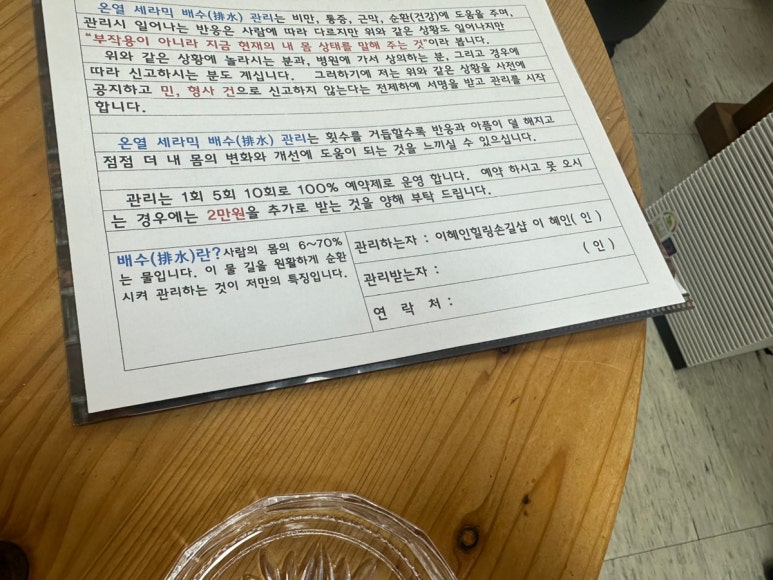 온열 세라믹 배수(排水) 관리는 비만, 통증, 근막, 순환(건강)에 도움을 주며,
관리시 일어나는 반응은 사람에 따라 다르지만 위와 같은 상황도 일어나지만
"부작용이 아니라 지금 현재의 내 몸 상태를 말해 주는 것"이라 봅니다.
위와 같은 상황에 놀라시는 분과, 병원에 가서 상의하는 분, 그리고 경우에
따라 신고하시는 분도 계십니다. 그러하기에 저는 위와 같은 상황을 사전에
공지하고 민, 형사 건으로 신고하지 않는다는 전제하에 서명을 받고 관리를 시작
합니다.
온열 세라믹 배수(排水) 관리는 횟수를 거듭할수록 반응과 아픔이 덜 해지고
점점 더 내 몸의 변화와 개선에 도움이 되는 것을 느끼실 수 있으십니다.
관리는 1회 5회 10회로 100% 예약제로 운영 합니다. 예약 하시고 못 오시
는 경우에는 2만원을 추가로 받는 것을 양해 부탁 드립니다.
배수(排水)란? 사람의 몸의 6~70%
는 물입니다. 이 물 길을 원활하게 순환
시켜 관리하는 것이 저만의 특징입니다.
관리하는자 : 이혜인힐링손길샵 이 혜인( 인 )
관리받는자 : ( 인 )
연 락 처 :